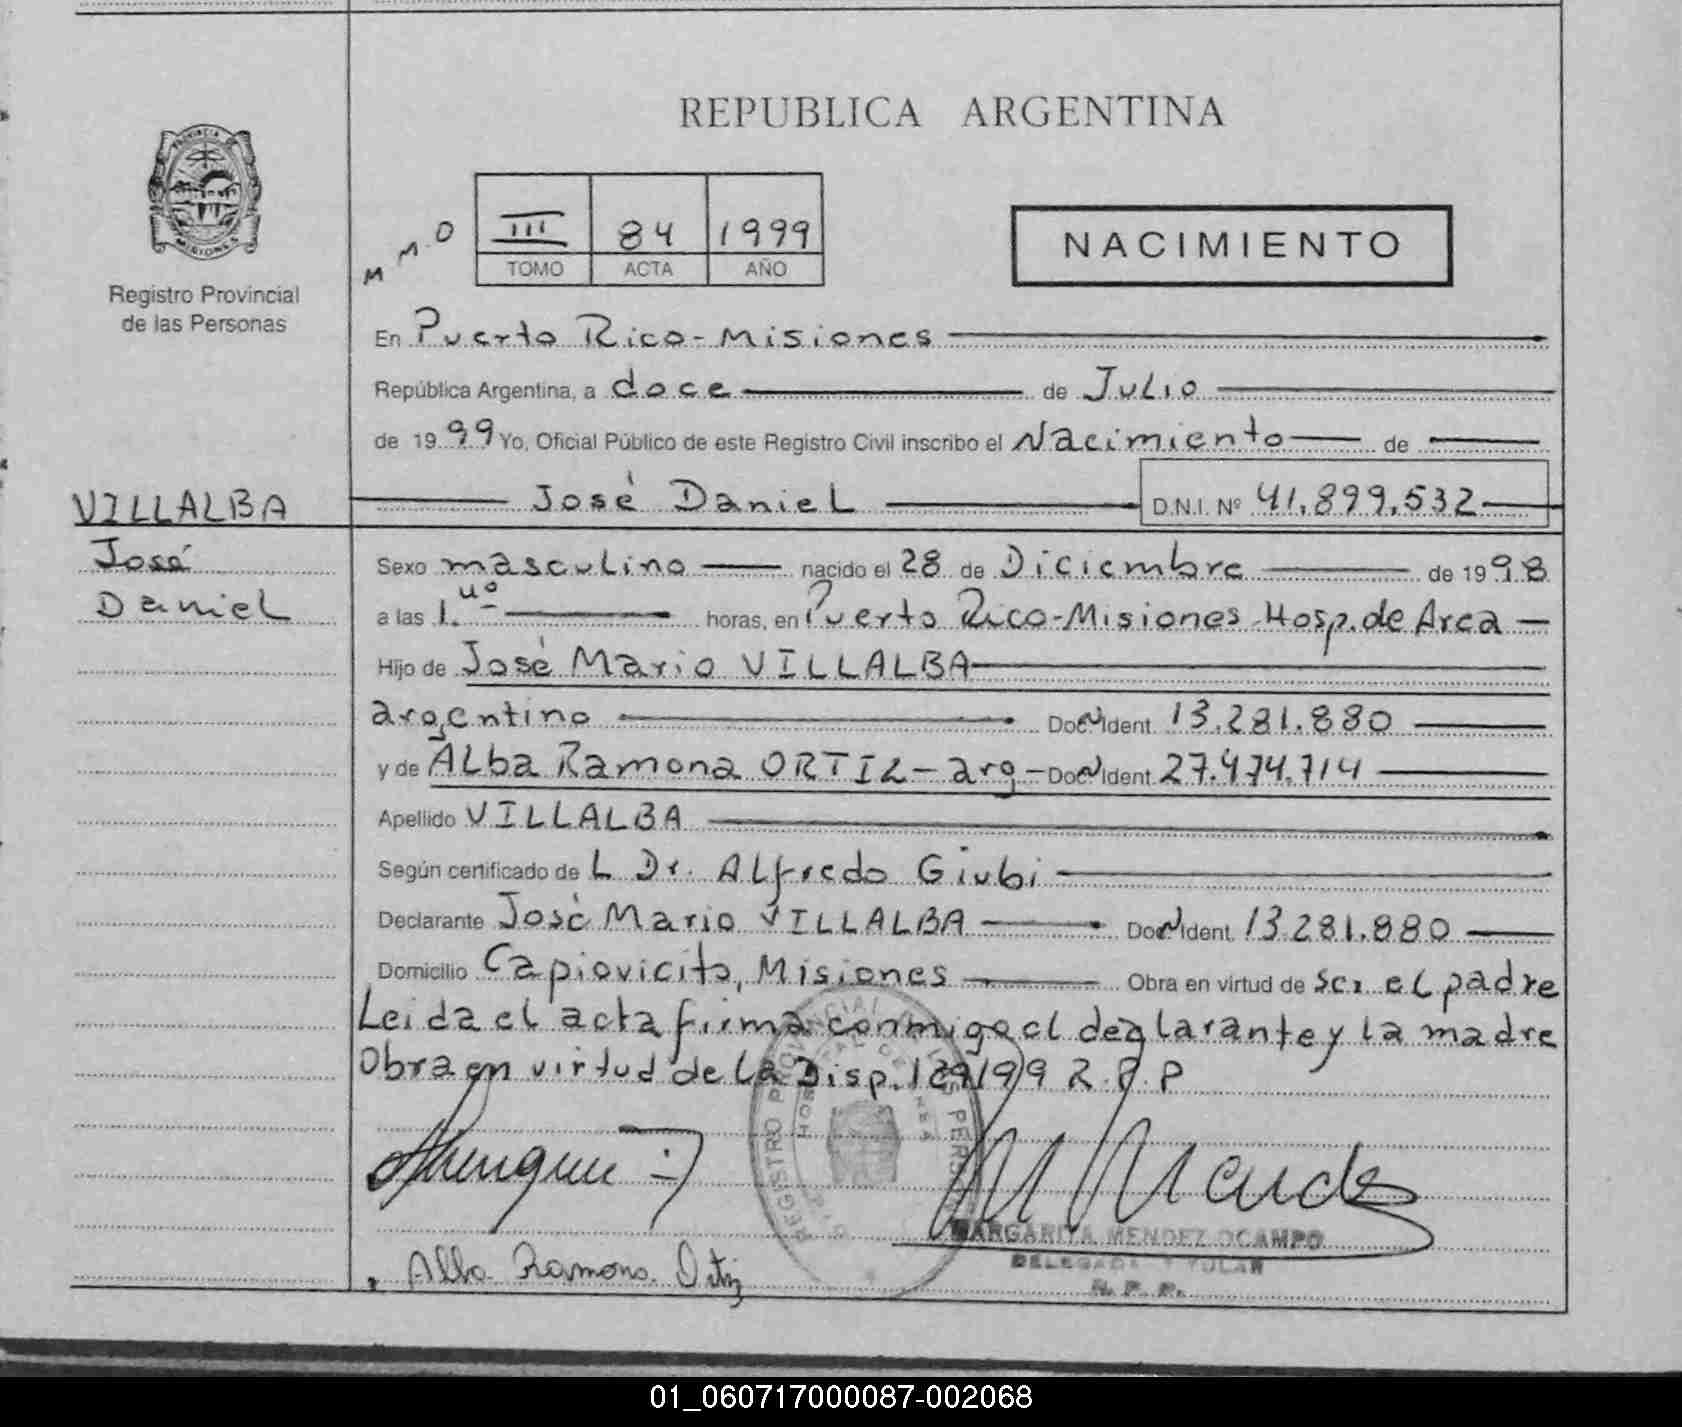 REPUBLICA ARGENTINA
PROVINCIA
MISIONES
Registro Provincial
de las Personas
M M O
III 84 1999
TOMO ACTA AÑO
NACIMIENTO
En Puerto Rico - Misiones
República Argentina, a doce de Julio
de 1999 Yo, Oficial Público de este Registro Civil inscribo el Nacimiento de
José Daniel D.N.I. Nº 41.899.532
VILLALBA
José
Daniel
Sexo masculino nacido el 28 de Diciembre de 1998
a las 1.- horas, en Puerto Rico - Misiones Hosp. de Area
Hijo de José Mario VILLALBA
argentino Doc. Ident. 13.281.880
y de Alba Ramona ORTIZ - arg - Doc. Ident. 27.474.714
Apellido VILLALBA
Según certificado de L Dr. Alfredo Giubi
Declarante José Mario VILLALBA Doc. Ident. 13.281.880
Domicilio Capiovicito, Misiones Obra en virtud de ser el padre
Leida el acta firma conmigo el declarante y la madre
Obra en virtud de la Disp. 129/99 R.P.P
REGISTRO PROVINCIAL DE LAS PERSONAS
HOSPITAL DE AREA
MARGARITA MENDEZ OCAMPO
DELEGADA TITULAR
R. P. P.
Alba Ramona Ortiz
01_060717000087-002068